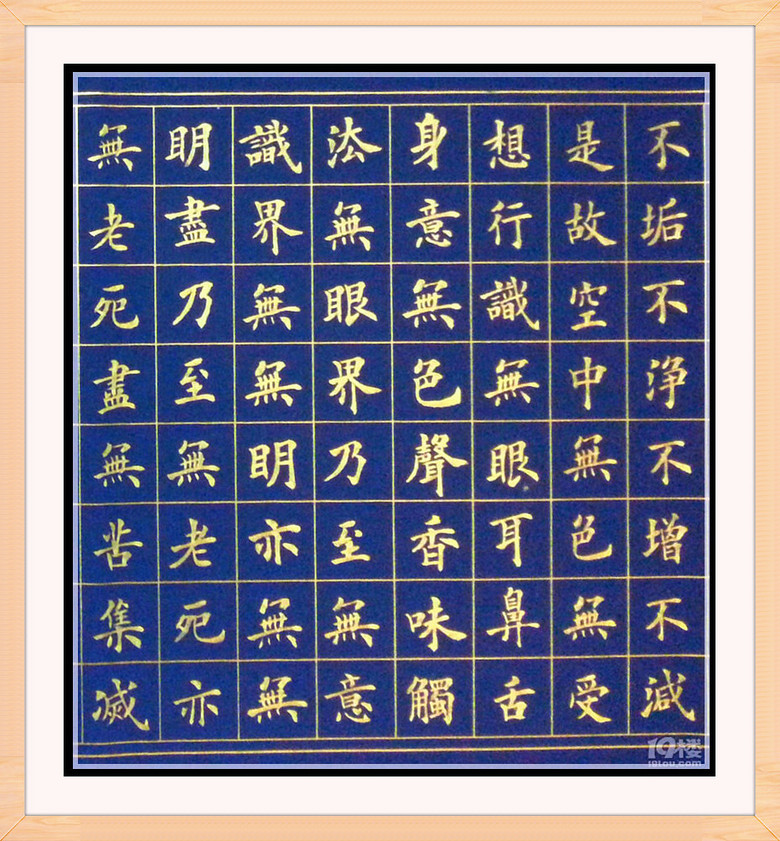 不垢不浄不增不減
是故空中無色無受
想行識無眼耳鼻舌
身意無色聲香味觸
法無眼界乃至無意
識界無無明亦無無
明盡乃至無老死亦
無老死盡無苦集滅
19楼
19lou.com